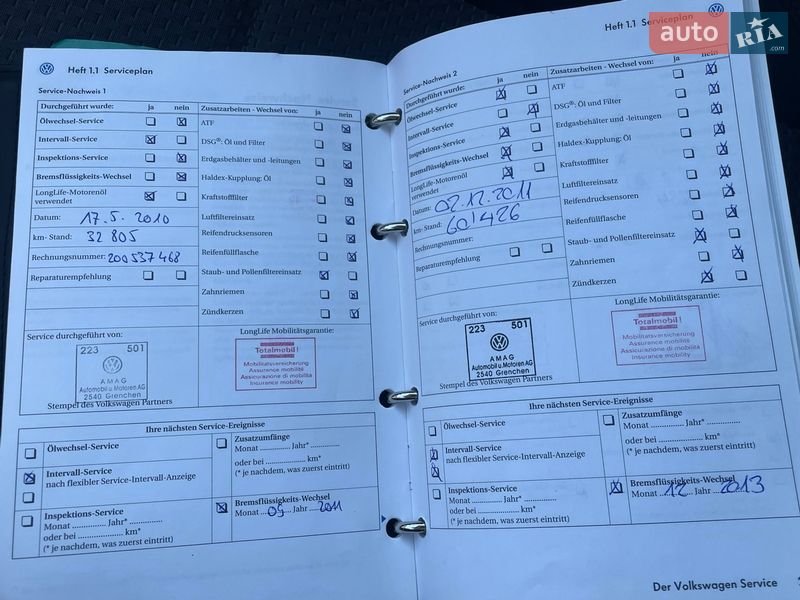 Heft 1.1 Serviceplan
Service-Nachweis 1
Durchgeführt wurde: ja nein
Ölwechsel-Service
Intervall-Service
Inspektions-Service
Bremsflüssigkeits-Wechsel
LongLife-Motorenöl
verwendet
Datum: 17.5.2010
km- Stand: 32 805
Rechnungsnummer: 200537468
Reparaturempfehlung
Zusatzarbeiten - Wechsel von: ja nein
ATF
DSG®: Öl und Filter
Erdgasbehälter und -leitungen
Haldex-Kupplung: Öl
Kraftstofffilter
Luftfiltereinsatz
Reifendrucksensoren
Reifenfüllflasche
Staub- und Pollenfiltereinsatz
Zahnriemen
Zündkerzen
Service durchgeführt von:
223 501
AMAG
Automobil u. Motoren AG
2540 Grenchen
Stempel des Volkswagen Partners
LongLife Mobilitätsgarantie:
Totalmobil!
Mobilitätsversicherung
Assurance mobilité
Assicurazione di mobilità
Insurance mobility
Ihre nächsten Service-Ereignisse
Ölwechsel-Service
Intervall-Service
nach flexibler Service-Intervall-Anzeige
Inspektions-Service
Monat .............. Jahr* ..............
oder bei .............. km*
(* je nachdem, was zuerst eintritt)
Zusatzumfänge
Monat .............. Jahr* ..............
oder bei .............. km*
(* je nachdem, was zuerst eintritt)
Bremsflüssigkeits-Wechsel
Monat 05 Jahr 2011
Heft 1.1 Serviceplan
auto RIA .com
Service-Nachweis 2
Durchgeführt wurde: ja nein
Ölwechsel-Service
Intervall-Service
Inspektions-Service
Bremsflüssigkeits-Wechsel
LongLife-Motorenöl
verwendet
Datum: 02.12.2011
km- Stand: 60'426
Rechnungsnummer:
Reparaturempfehlung
Zusatzarbeiten - Wechsel von: ja nein
ATF
DSG®: Öl und Filter
Erdgasbehälter und -leitungen
Haldex-Kupplung: Öl
Kraftstofffilter
Luftfiltereinsatz
Reifendrucksensoren
Reifenfüllflasche
Staub- und Pollenfiltereinsatz
Zahnriemen
Zündkerzen
Service durchgeführt von:
223 501
AMAG
Automobil u. Motoren AG
2540 Grenchen
Stempel des Volkswagen Partners
LongLife Mobilitätsgarantie:
Totalmobil!
Mobilitätsversicherung
Assurance mobilité
Assicurazione di mobilità
Insurance mobility
Ihre nächsten Service-Ereignisse
Ölwechsel-Service
Intervall-Service
nach flexibler Service-Intervall-Anzeige
Inspektions-Service
Monat .............. Jahr* ..............
oder bei .............. km*
(* je nachdem, was zuerst eintritt)
Zusatzumfänge
Monat .............. Jahr* ..............
oder bei .............. km*
(* je nachdem, was zuerst eintritt)
Bremsflüssigkeits-Wechsel
Monat 12 Jahr 2013
Der Volkswagen Service